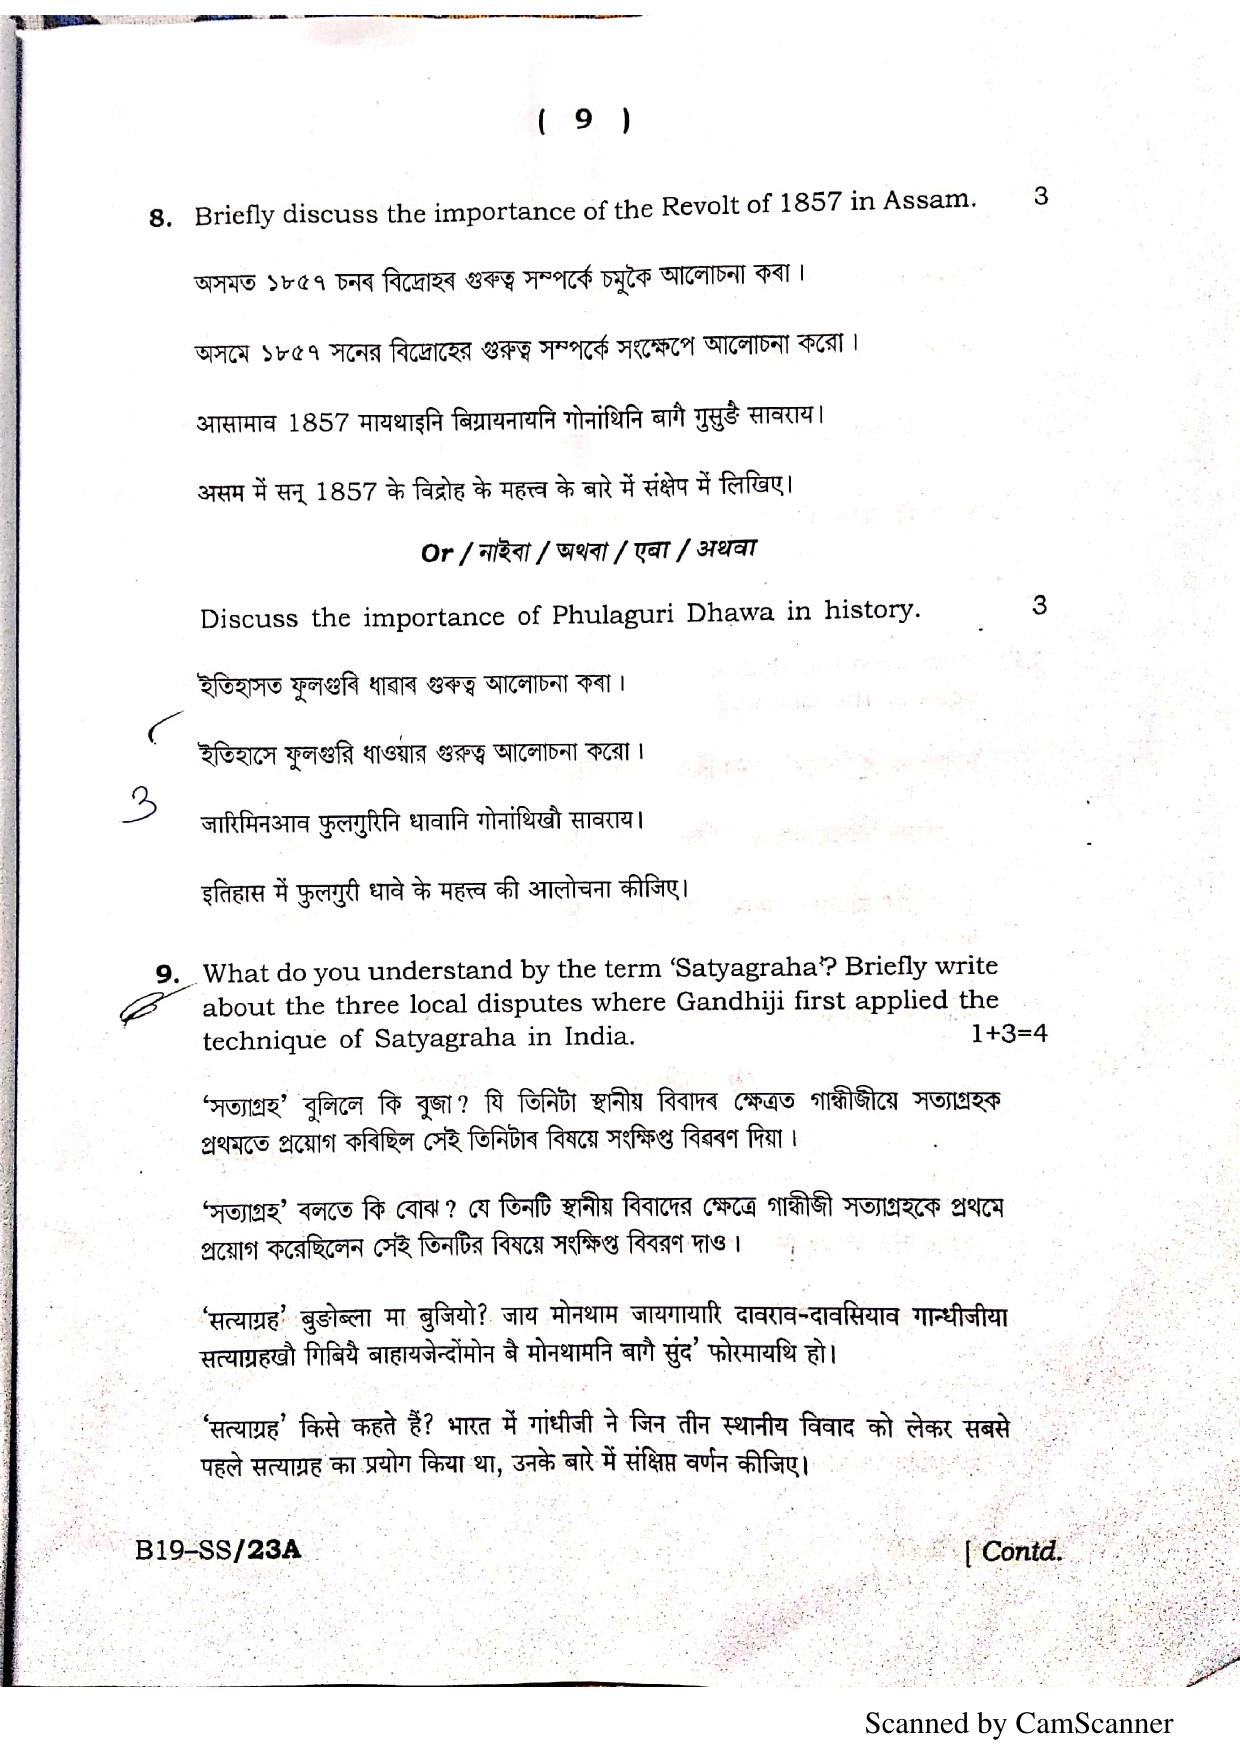 ( 9 )
8. Briefly discuss the importance of the Revolt of 1857 in Assam. 3
অসমত ১৮৫৭ চনৰ বিদ্ৰোহৰ গুৰুত্ব সম্পৰ্কে চমুকৈ আলোচনা কৰা ।
অসমে ১৮৫৭ সনের বিদ্রোহের গুরুত্ব সম্পর্কে সংক্ষেপে আলোচনা করো ।
आसामाव 1857 मायथाइनि बिग्रायनायनि गोनांथिनि बागै गुसुङै सावराय।
असम में सन् 1857 के विद्रोह के महत्त्व के बारे में संक्षेप में लिखिए।
Or / নাইবা / অথবা / एबा / अथवा
Discuss the importance of Phulaguri Dhawa in history. 3
ইতিহাসত ফুলগুৰি ধাৱাৰ গুৰুত্ব আলোচনা কৰা ।
ইতিহাসে ফুলগুরি ধাওয়ার গুরুত্ব আলোচনা করো ।
3
जारिमिनआव फुलगुरिनि धावानि गोनांथिखौ सावराय।
इतिहास में फुलगुरी धावे के महत्त्व की आलोचना कीजिए।
9. What do you understand by the term ‘Satyagraha’? Briefly write
about the three local disputes where Gandhiji first applied the
technique of Satyagraha in India. 1+3=4
‘সত্যাগ্ৰহ’ বুলিলে কি বুজা ? যি তিনিটা স্থানীয় বিবাদৰ ক্ষেত্ৰত গান্ধীজীয়ে সত্যাগ্ৰহক
প্ৰথমতে প্ৰয়োগ কৰিছিল সেই তিনিটাৰ বিষয়ে সংক্ষিপ্ত বিৱৰণ দিয়া ।
‘সত্যাগ্রহ’ বলতে কি বোঝ ? যে তিনটি স্থানীয় বিবাদের ক্ষেত্রে গান্ধীজী সত্যাগ্রহকে প্রথমে
প্রয়োগ করেছিলেন সেই তিনটির বিষয়ে সংক্ষিপ্ত বিবরণ দাও ।
‘सत्याग्रह’ बुङोब्ला मा बुजियो? जाय मोनथाम जायगायारि दावराव-दावसियाव गान्धीजीया
सत्याग्रहखौ गिबियै बाहायजेन्दोंमोन बै मोनथामनि बागै सुंद’ फोरमायथि हो।
‘सत्याग्रह’ किसे कहते हैं? भारत में गांधीजी ने जिन तीन स्थानीय विवाद को लेकर सबसे
पहले सत्याग्रह का प्रयोग किया था, उनके बारे में संक्षिप्त वर्णन कीजिए।
B19–SS/23A [ Contd.
Scanned by CamScanner